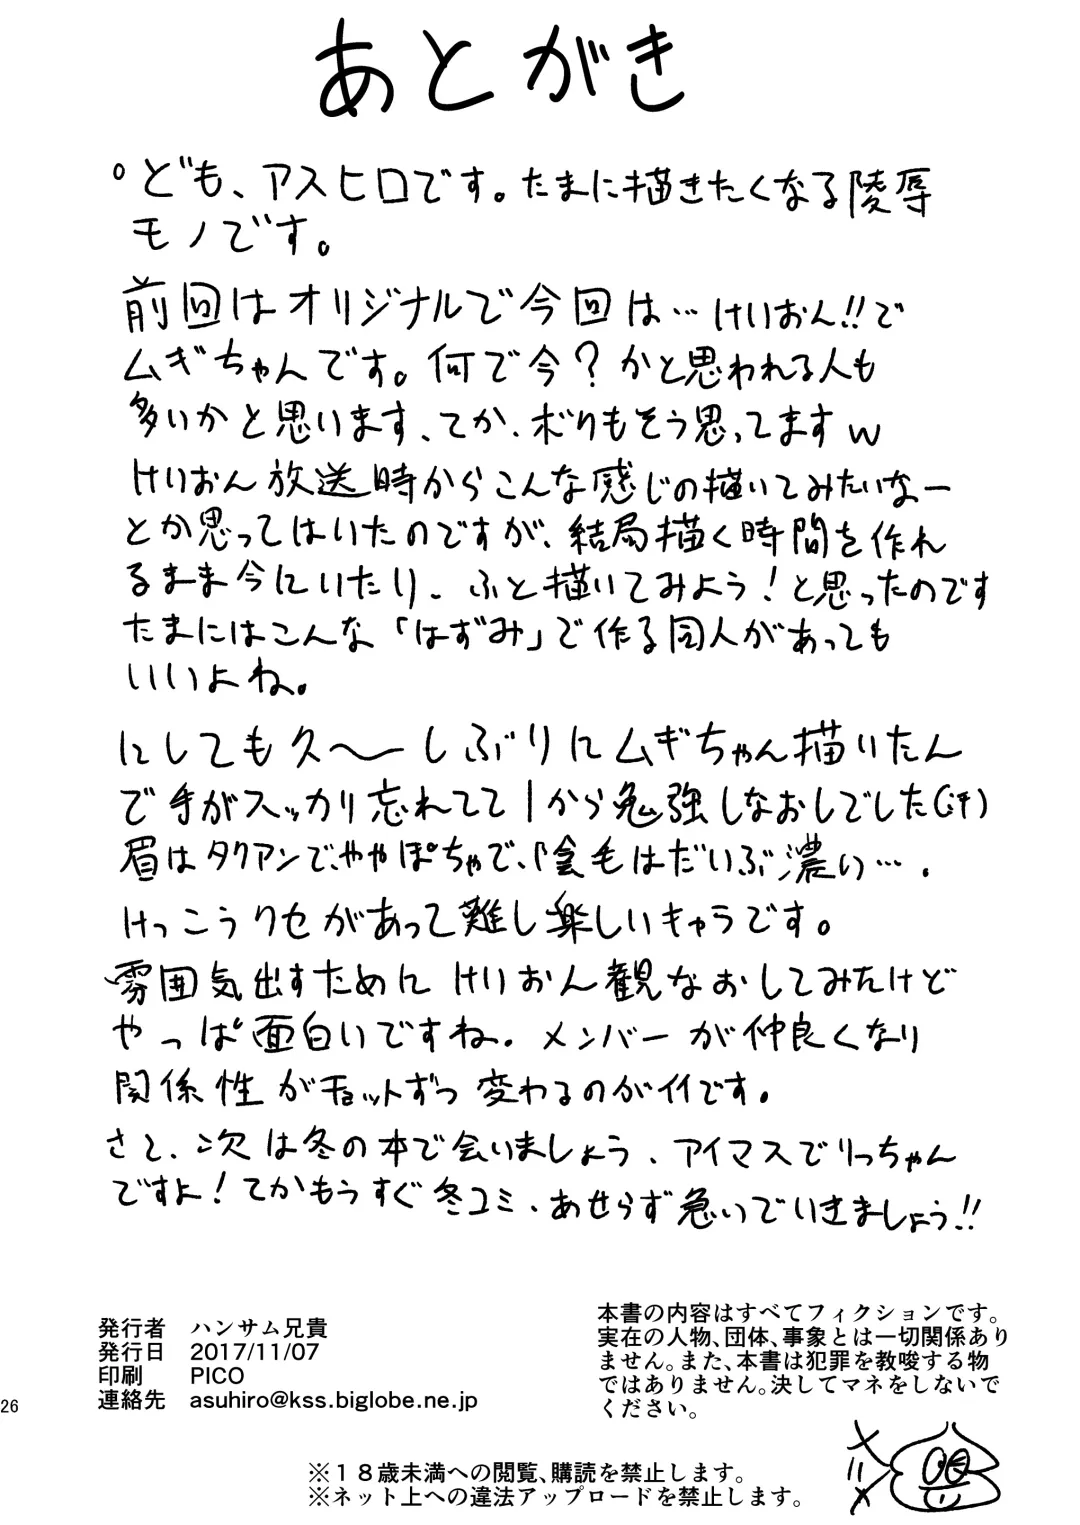 あとがき
°ども、アスヒロです。たまに描きたくなる陵辱
モノです。
前回はオリジナルで今回は…けいおん!!で
ムギちゃんです。何で今?かと思われる人も
多いかと思います、てか、ボクもそう思ってますw
けいおん放送時からこんな感じの描いてみたいなー
とか思ってはいたのですが、結局描く時間を作れ
るまま今にいたり、ふと描いてみよう!と思ったのです
たまにはこんな「はずみ」で作る同人があっても
いいよね。
にしても久〜しぶりにムギちゃん描いたん
で手がスッカリ忘れてて1から勉強しなおしでした(汗)
眉はタクアンで、ややぽちゃで、陰毛はだいぶ濃い….
けっこうクセがあって難し楽しいキャラです。
雰囲気出すためにけいおん観なおしてみたけど
やっぱ面白いですね。メンバーが仲良くなり
関係性がチョットずつ変わるのがイイです。
さて、次は冬の本で会いましょう、アイマスでりっちゃん
ですよ!てかもうすぐ冬コミ、あせらず急いでいきましょう!!
発行者 ハンサム兄貴
発行日 2017/11/07
印刷 PICO
連絡先 asuhiro@kss.biglobe.ne.jp
本書の内容はすべてフィクションです。
実在の人物、団体、事象とは一切関係あり
ません。また、本書は犯罪を教唆する物
ではありません。決してマネをしないで
ください。
26
※18歳未満への閲覧、購読を禁止します。
※ネット上への違法アップロードを禁止します。